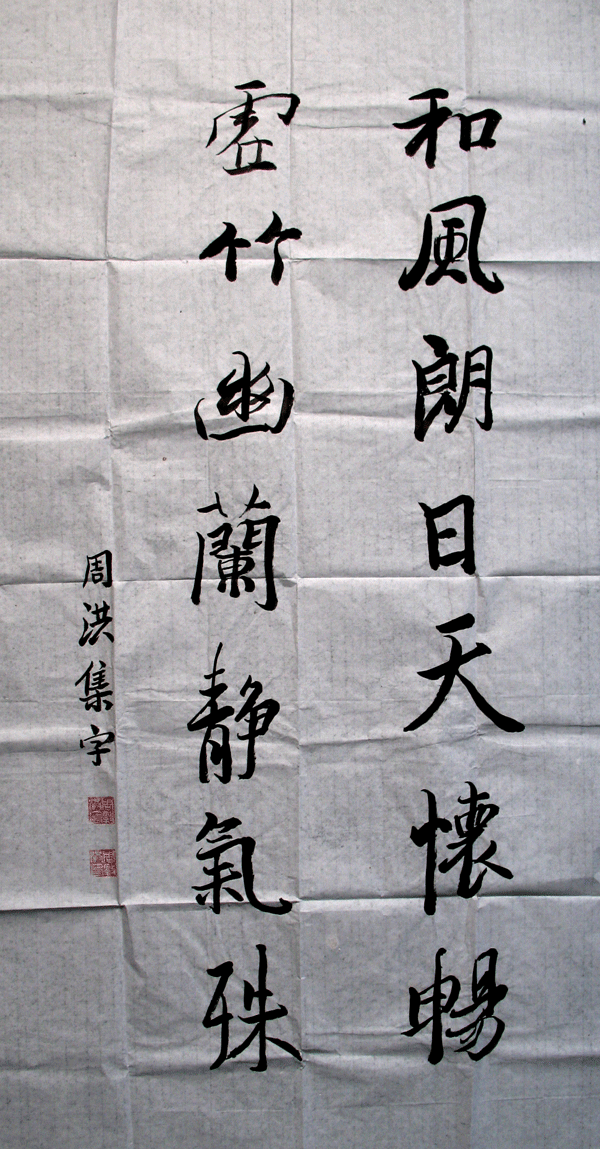 和風朗日天懷暢
虛竹幽蘭靜氣殊
周洪集字